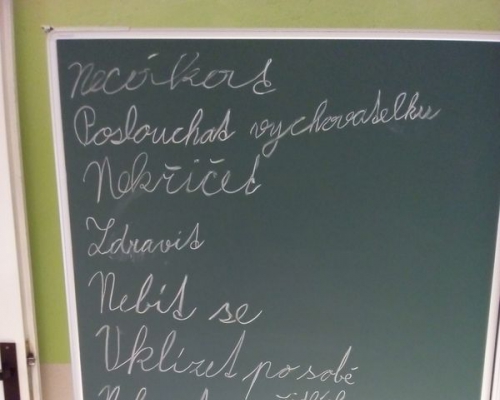 Necourat
Poslouchat vychovatelku
Nekřičet
Zdravit
Nebít se
Uklízet po sobě